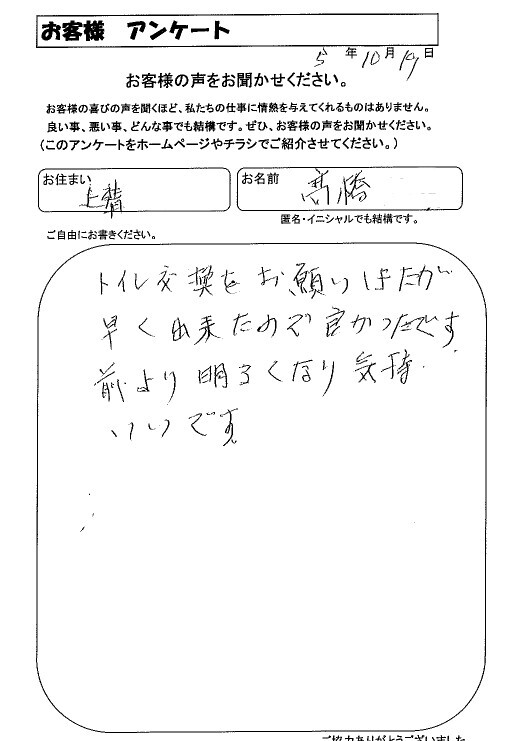 お客様　アンケート
5年10月19日
お客様の声をお聞かせください。
お客様の喜びの声を聞くほど、私たちの仕事に情熱を与えてくれるものはありません。
良い事、悪い事、どんな事でも結構です。ぜひ、お客様の声をお聞かせください。
(このアンケートをホームページやチラシでご紹介させてください。)
お住まい
お名前 髙橋
匿名・イニシャルでも結構です。
ご自由にお書きください。
トイレ交換をお願いしましたが
早く出来たので良かったです
前より明るくなり気持
いいです
ご協力ありがとうございました